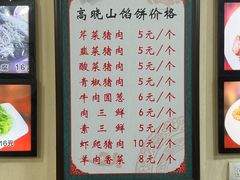 高晓山馅饼价格
芹菜猪肉 5元/个
韭菜猪肉 5元/个
酸菜猪肉 5元/个
青椒猪肉 5元/个
牛肉圆葱 6元/个
肉三鲜 6元/个
素三鲜 5元/个
虾爬猪肉 10元/个
羊肉香菜 8元/个
16
16元